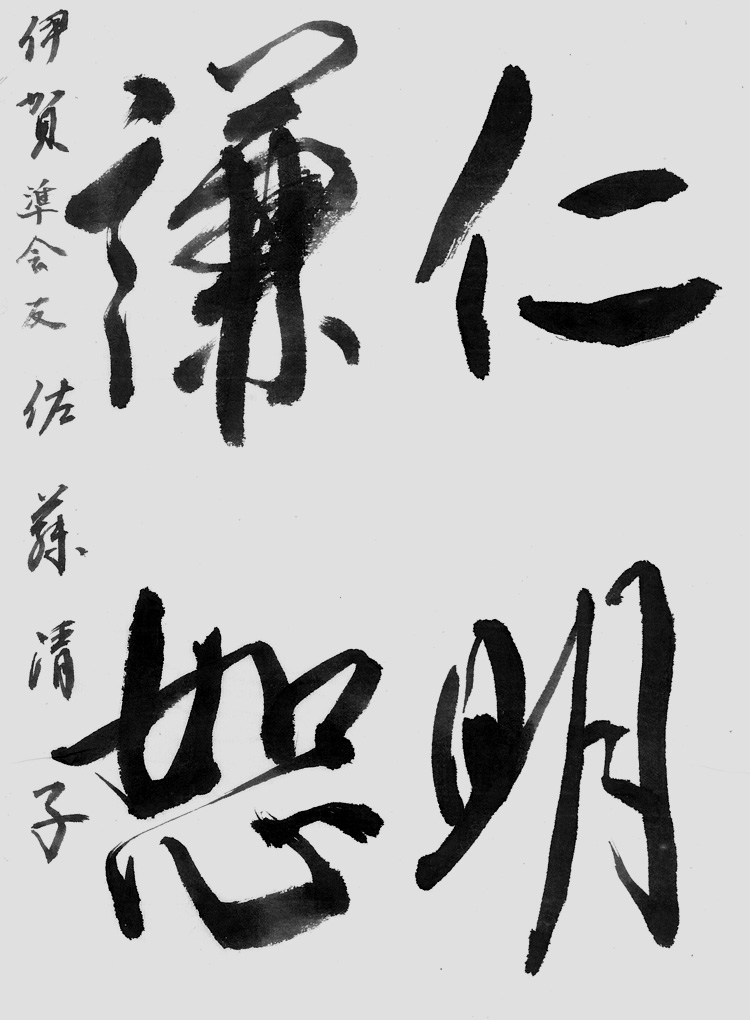 仁明
謙恕
伊賀 準会友 佐藤清子